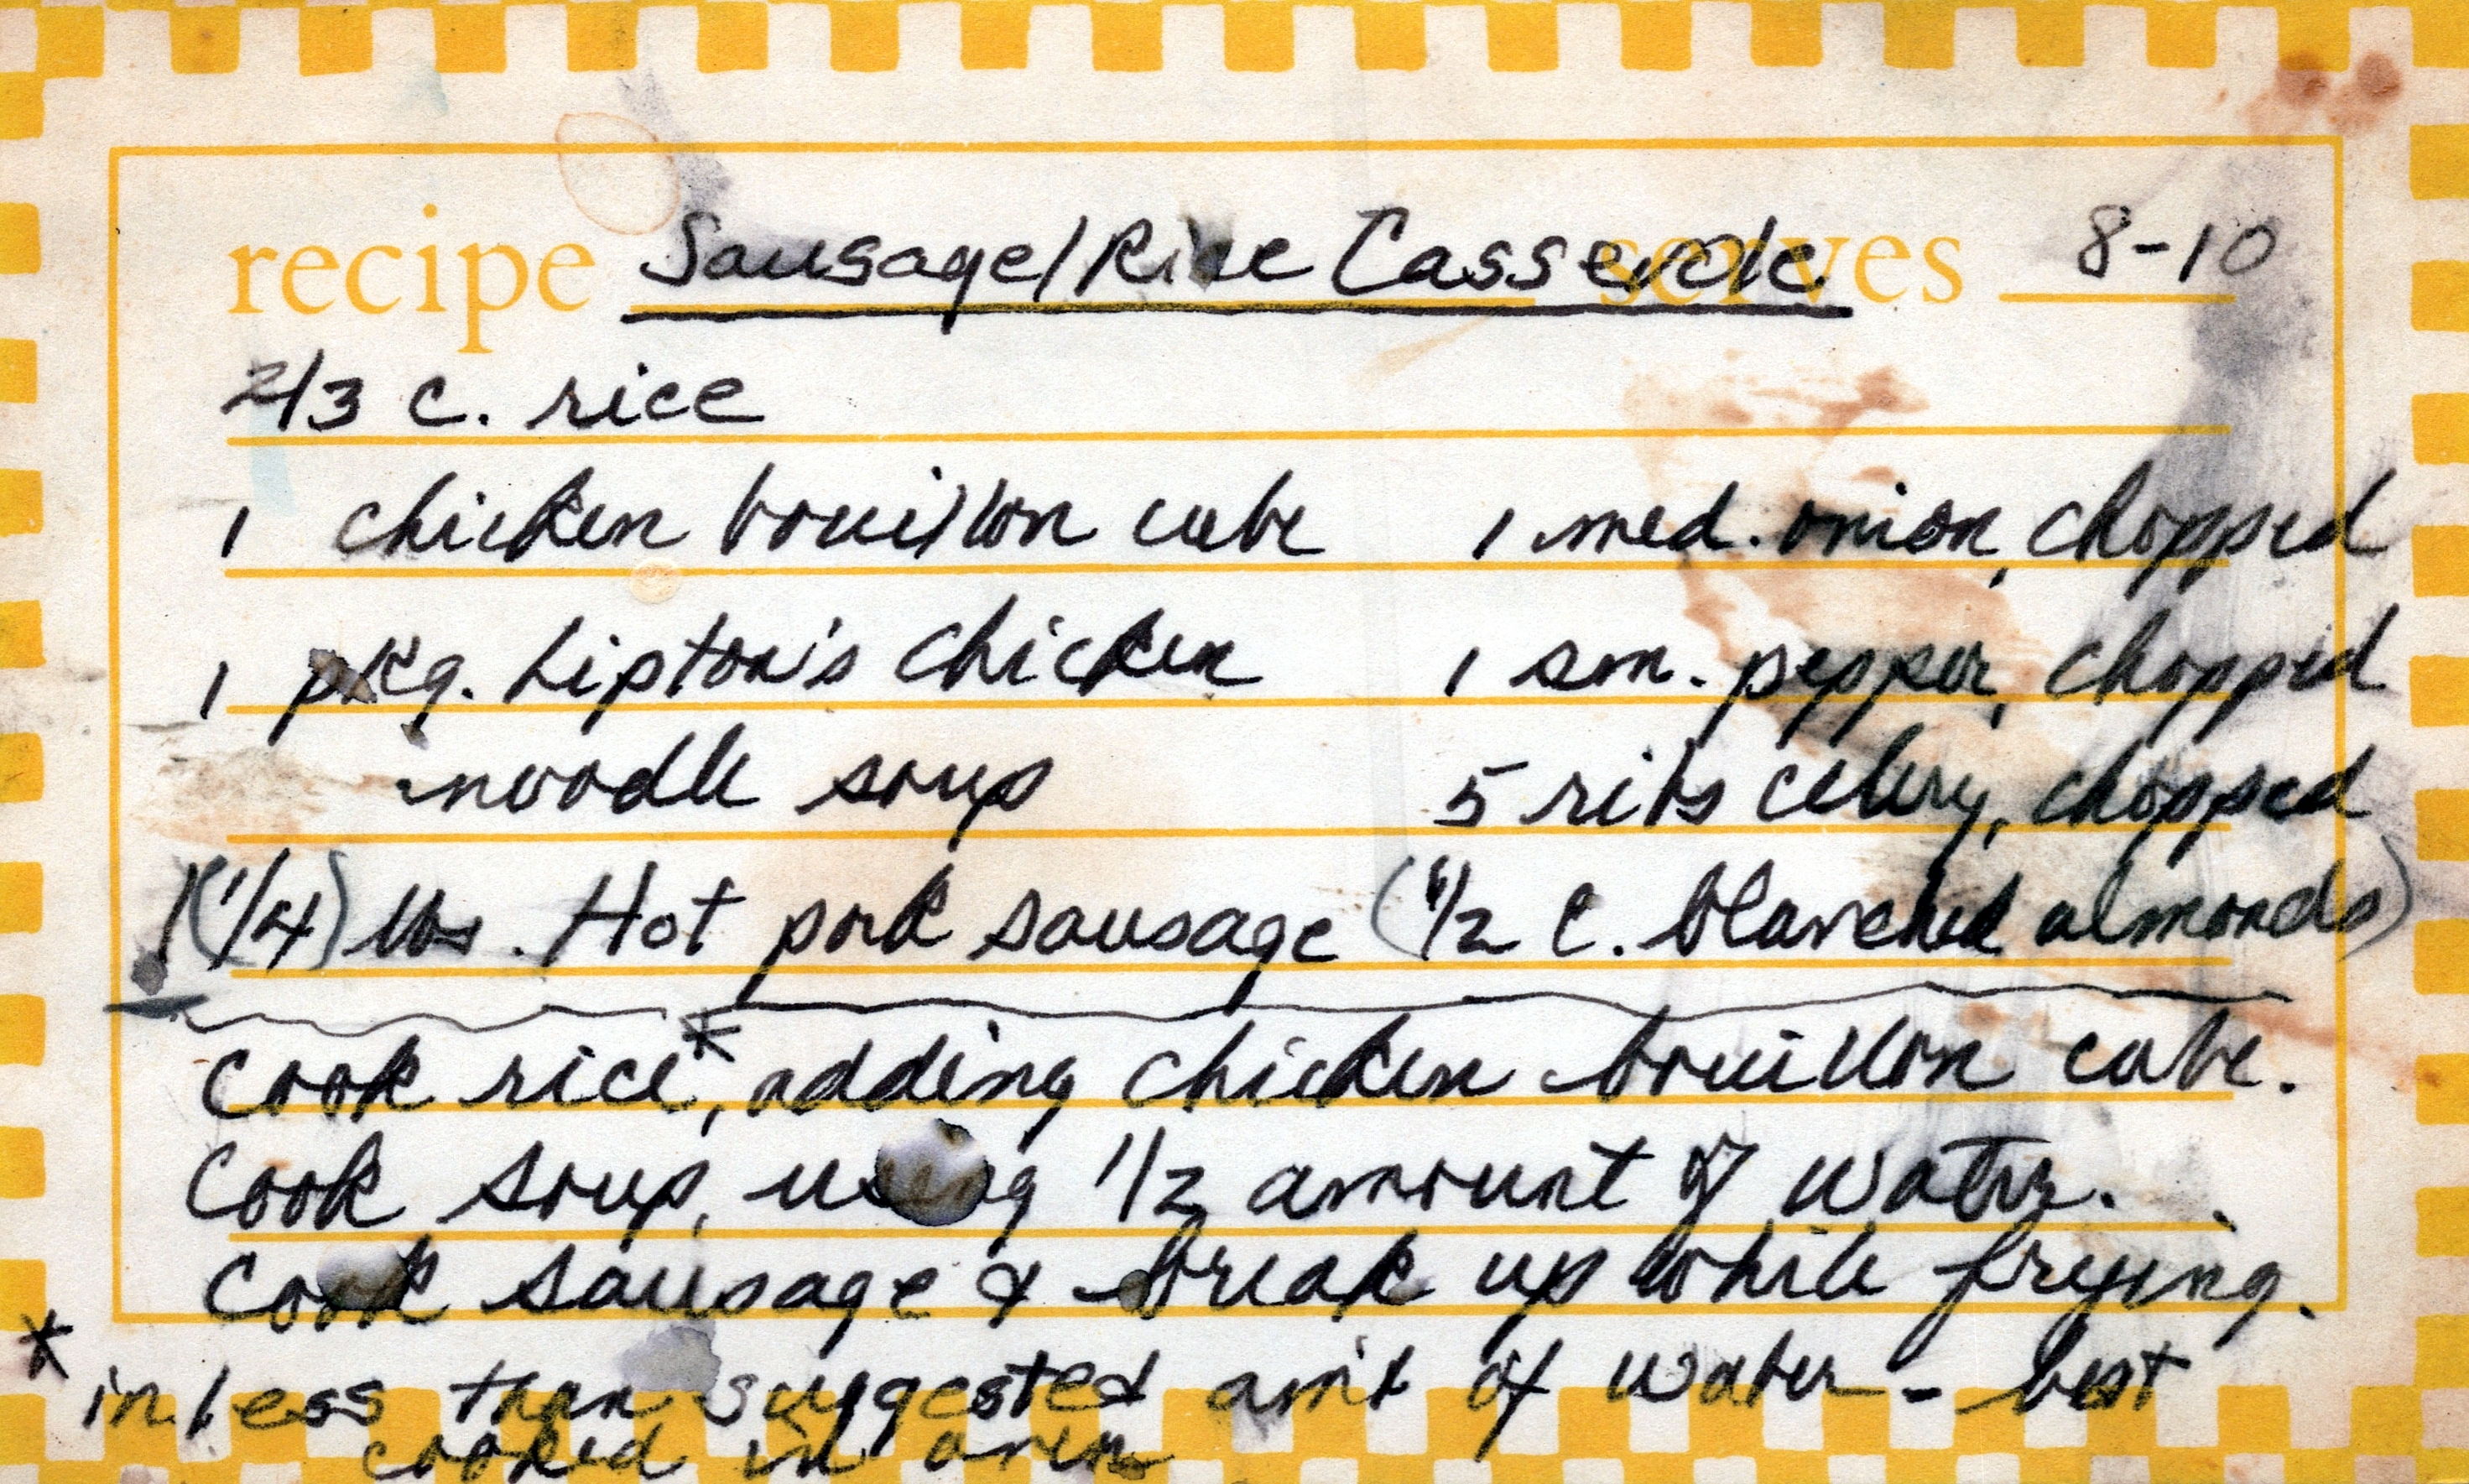 recipe Sausage/Rice Casserole serves 8-10
2/3 c. rice
1 chicken bouillon cube 1 med. onion, chopped
1 pkg. Lipton's chicken 1 sm. pepper, chopped
noodle soup 5 ribs celery, chopped
1(1/4) lbs. Hot pork sausage (1/2 c. blanched almonds)
Cook rice*, adding chicken bouillon cube.
Cook soup, using 1/2 amount of water.
Cook sausage & break up while frying.
* in less than suggested am't of water - best
cooked in oven